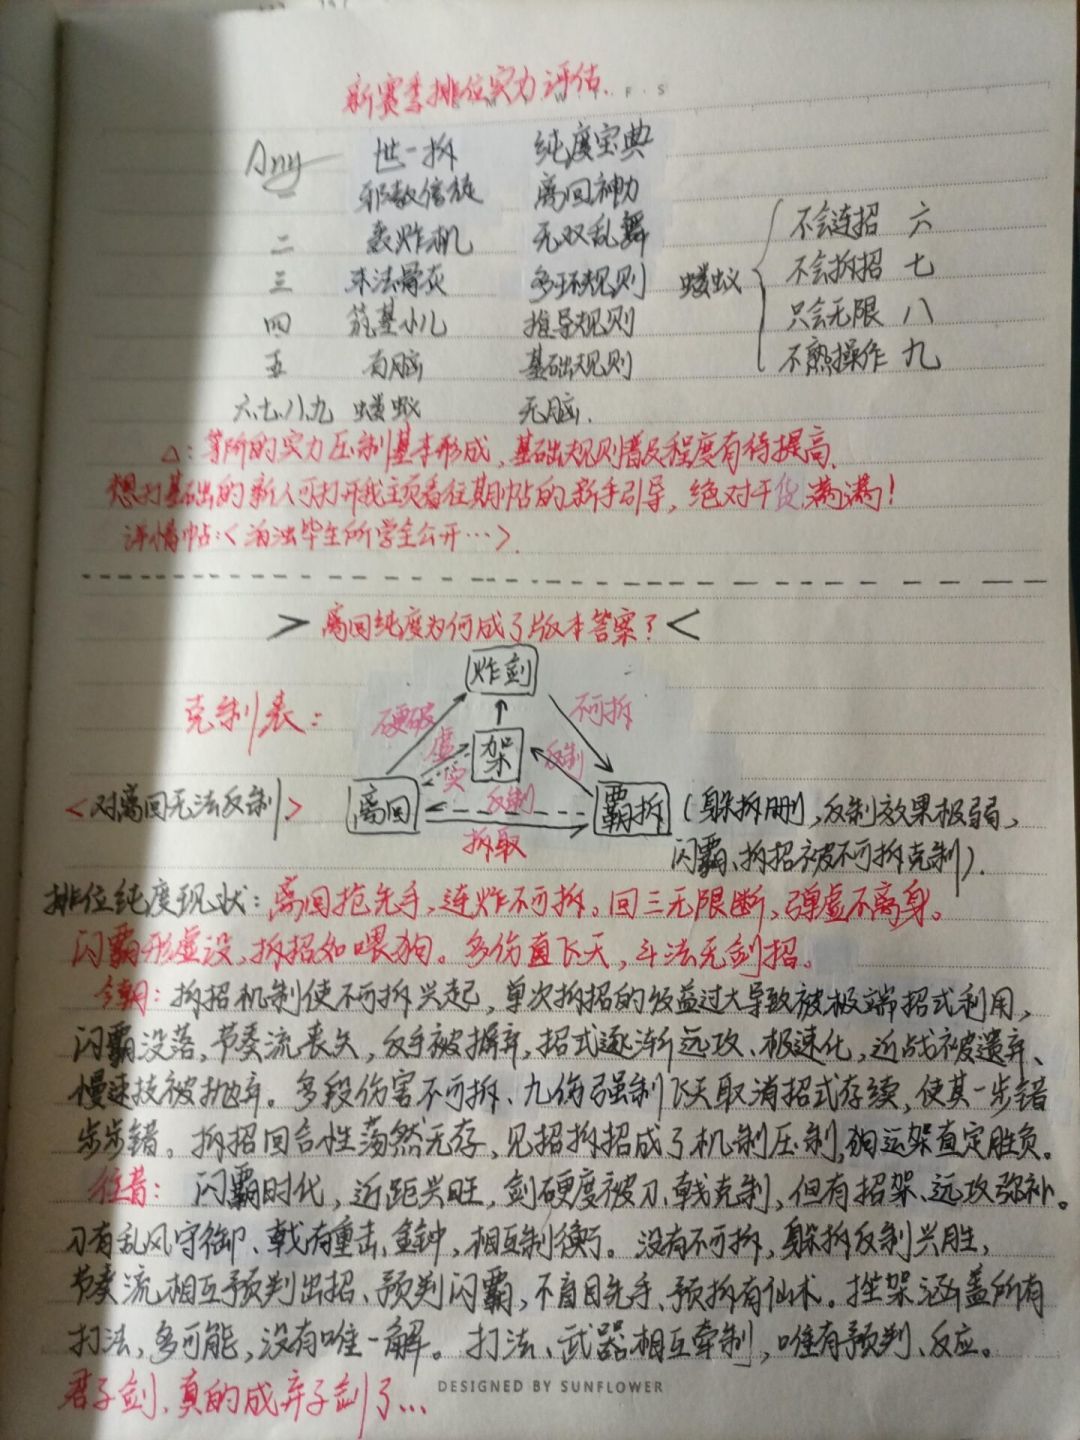 新赛季排位实力评估.
F · S
Any 世一拆 纯度宝典
一 邪教信徒 离回神力
二 轰炸机 无双乱舞
三 末法骨灰 多环规则
四 筑基小儿 推导规则
五 有脑 基础规则
六、七、八、九 蝼蚁 无脑.
蝼蚁
不会连招 六
不会拆招 七
只会无限 八
不熟操作 九
△:等阶的实力压制基本形成,基础规则普及程度有待提高.
想打基础的新人可打开我主页看往期帖的新手引导,绝对干货满满!
详情帖:<治浊毕生所学全公开…>.
> 离回纯度为何成了版本答案? <
克制表:
炸剑
硬破 不可拆
虚实 架 反制
<对离回无法反制> 离回 反制 霸拆 (躲拆删,反制效果极弱,
拆取 闪霸、拆招被不可拆克制).
排位纯度现状:离回抢先手,连炸不可拆。回三无限断,弹虚不离身。
闪霸形虚设,拆招如喂狗。多伤直飞天,斗法无剑招。
今朝:拆招机制使不可拆兴起,单次拆招的收益过大导致被极端招式利用,
闪霸没落,节奏流丧失,反手被摒弃,招式逐渐远攻、极速化,近战被遗弃、
慢速技被抛弃。多段伤害不可拆、九伤强制飞天取消招式存续,使其一步错
步步错。拆招回合性荡然无存,见招拆招成了机制压制,狗运架直定胜负。
往昔: 闪霸时代,近距兴旺,剑硬度被刀、戟克制,但有招架、远攻弥补。
刀有乱风守御、戟有重击、金钟,相互制衡。没有不可拆,躲拆反制兴胜,
节奏流相互预判出招、预判闪霸,不盲目先手、预拆有仙术。挫架涵盖所有
打法,多可能,没有唯一解。打法、武器相互牵制,唯有预判、反应。
君子剑,真的成弃子剑了…
DESIGNED BY SUNFLOWER